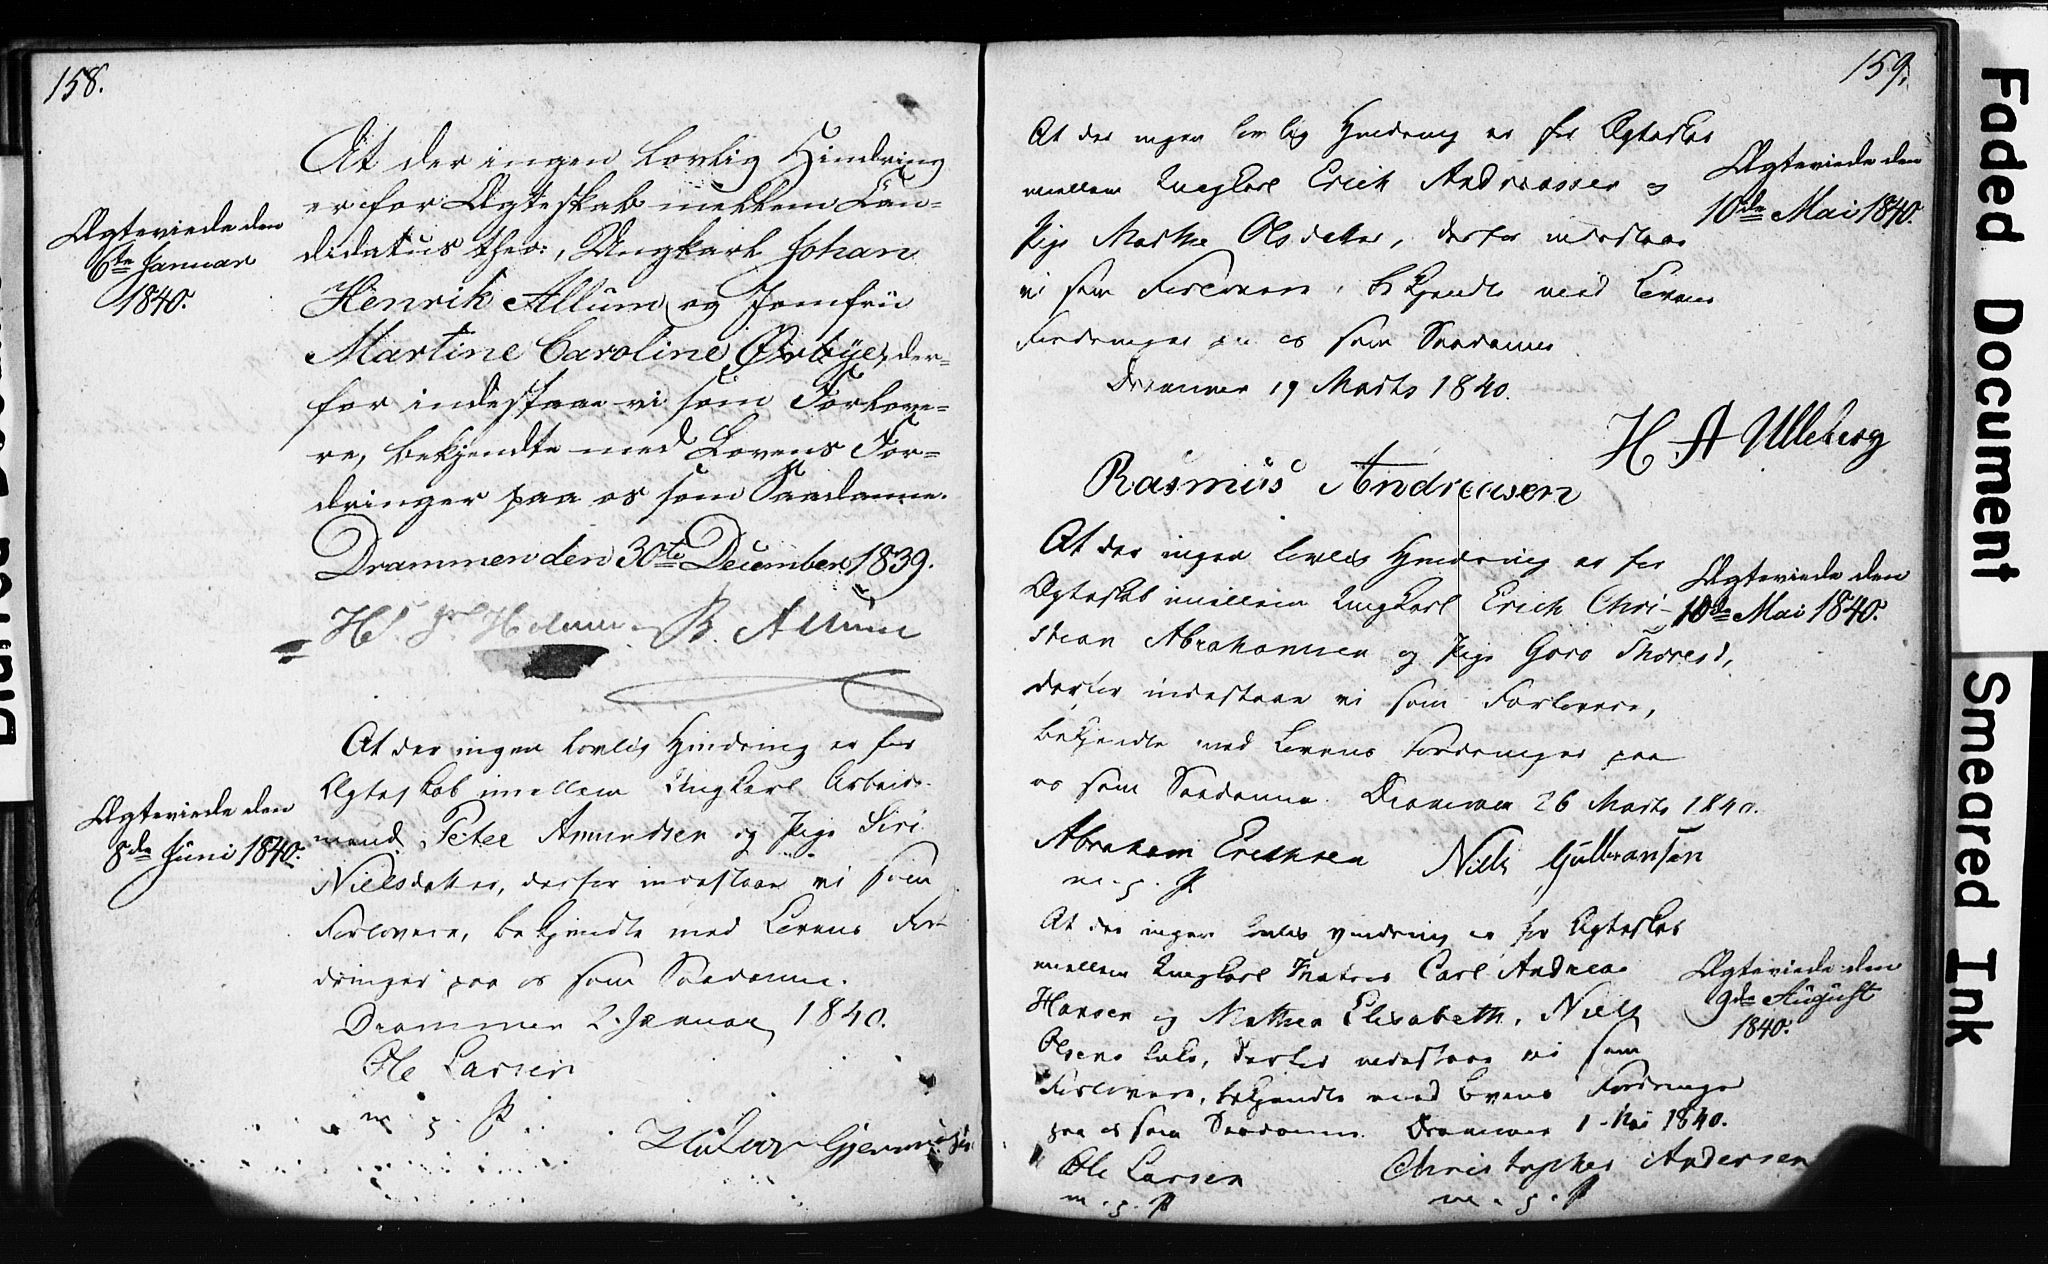 158.
At der ingen lovlig Hindring
er for Ægteskab mellem Can-
didatus theo:, Ungkarl Johan
Henrik Allum og Jomfru
Martine Caroline Ørbye, der-
for indestaae vi som Forlove-
re, bekjendte med Lovens For-
dringer paa os som Saadanne.
Drammen den 30te December 1839.
B. Allum
Ægteviede den
6te Januar
1840.
At der ingen lovlig Hindring er for
Ægteskab imellem Ungkarl Arbeids-
mand Peter Amundsen og Pige Siri
Nielsdatter, derfor indestaae vi som
Forlovere, bekjendte med Lovens For-
dringer paa os som Saadanne.
Drammen 2 Januar 1840.
Ole Larsen
m. g. P.
Ægteviede den
8de Juni 1840.
159.
At der ingen lovlig Hindring er for Ægteskab
mellem Ungkarl Erich Andreassen og
Pige Marthe Olsdatter, derfor indestaae
vi som Forlovere, bekjendte med Lovens
Fordringer paa os som Saadanne
Drammen 19 Marts 1840.
H A Ulleberg
Rasmus Andreasen
Ægteviede den
10de Mai 1840.
At der ingen lovlig Hindring er for
Ægteskab mellem Ungkarl Erich Chri-
stian Abrahamsen og Pige Goro Thoresd,
derfor indestaae vi som Forlovere,
bekjendte med Lovens Fordringer paa
os som Saadanne. Drammen 26 Marts 1840.
Abraham Erichsen Niels Gulbransen
m. g. P
Ægteviede den
10de Mai 1840.
At der ingen lovlig Hindring er for Ægteskab
mellem Ungkarl Carl Andreas
Hansen og Elisabeth, Niels
Olsens, derfor indestaae vi som
Forlovere, bekjendte med Lovens Fordringer
paa os som Saadanne. Drammen 1 Mai 1840.
Ole Larsen Christopher Andersen
m. g. P m. g. P
Ægteviede den
9de August
1840.
Faded Document
Smeared Ink